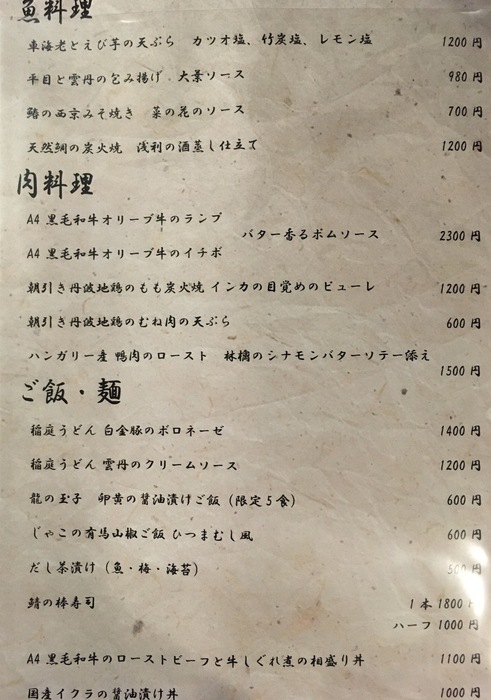 魚料理
車海老とえび芋の天ぷら　カツオ塩、竹炭塩、レモン塩　1200円
平目と雲丹の包み揚げ　大葉ソース　980円
鰆の西京みそ焼き　菜の花のソース　700円
天然鯛の炭火焼　浅利の酒蒸し仕立て　1200円
肉料理
A4 黒毛和牛オリーブ牛のランプ
バター香るポムソース　2300円
A4 黒毛和牛オリーブ牛のイチボ
朝引き丹波地鶏のもも炭火焼 インカの目覚めのピューレ　1200円
朝引き丹波地鶏のむね肉の天ぷら　600円
ハンガリー産 鴨肉のロースト　林檎のシナモンバターソテー添え
1500円
ご飯・麺
稲庭うどん 白金豚のボロネーゼ　1400円
稲庭うどん 雲丹のクリームソース　1200円
龍の玉子　卵黄の醤油漬けご飯（限定5食）　600円
じゃこの有馬山椒ご飯 ひつまむし風　600円
だし茶漬け（魚・梅・海苔）　500円
鯖の棒寿司　1本1800円
ハーフ1000円
A4 黒毛和牛のローストビーフと牛しぐれ煮の相盛り丼　1100円
国産イクラの醤油漬け丼　1000円